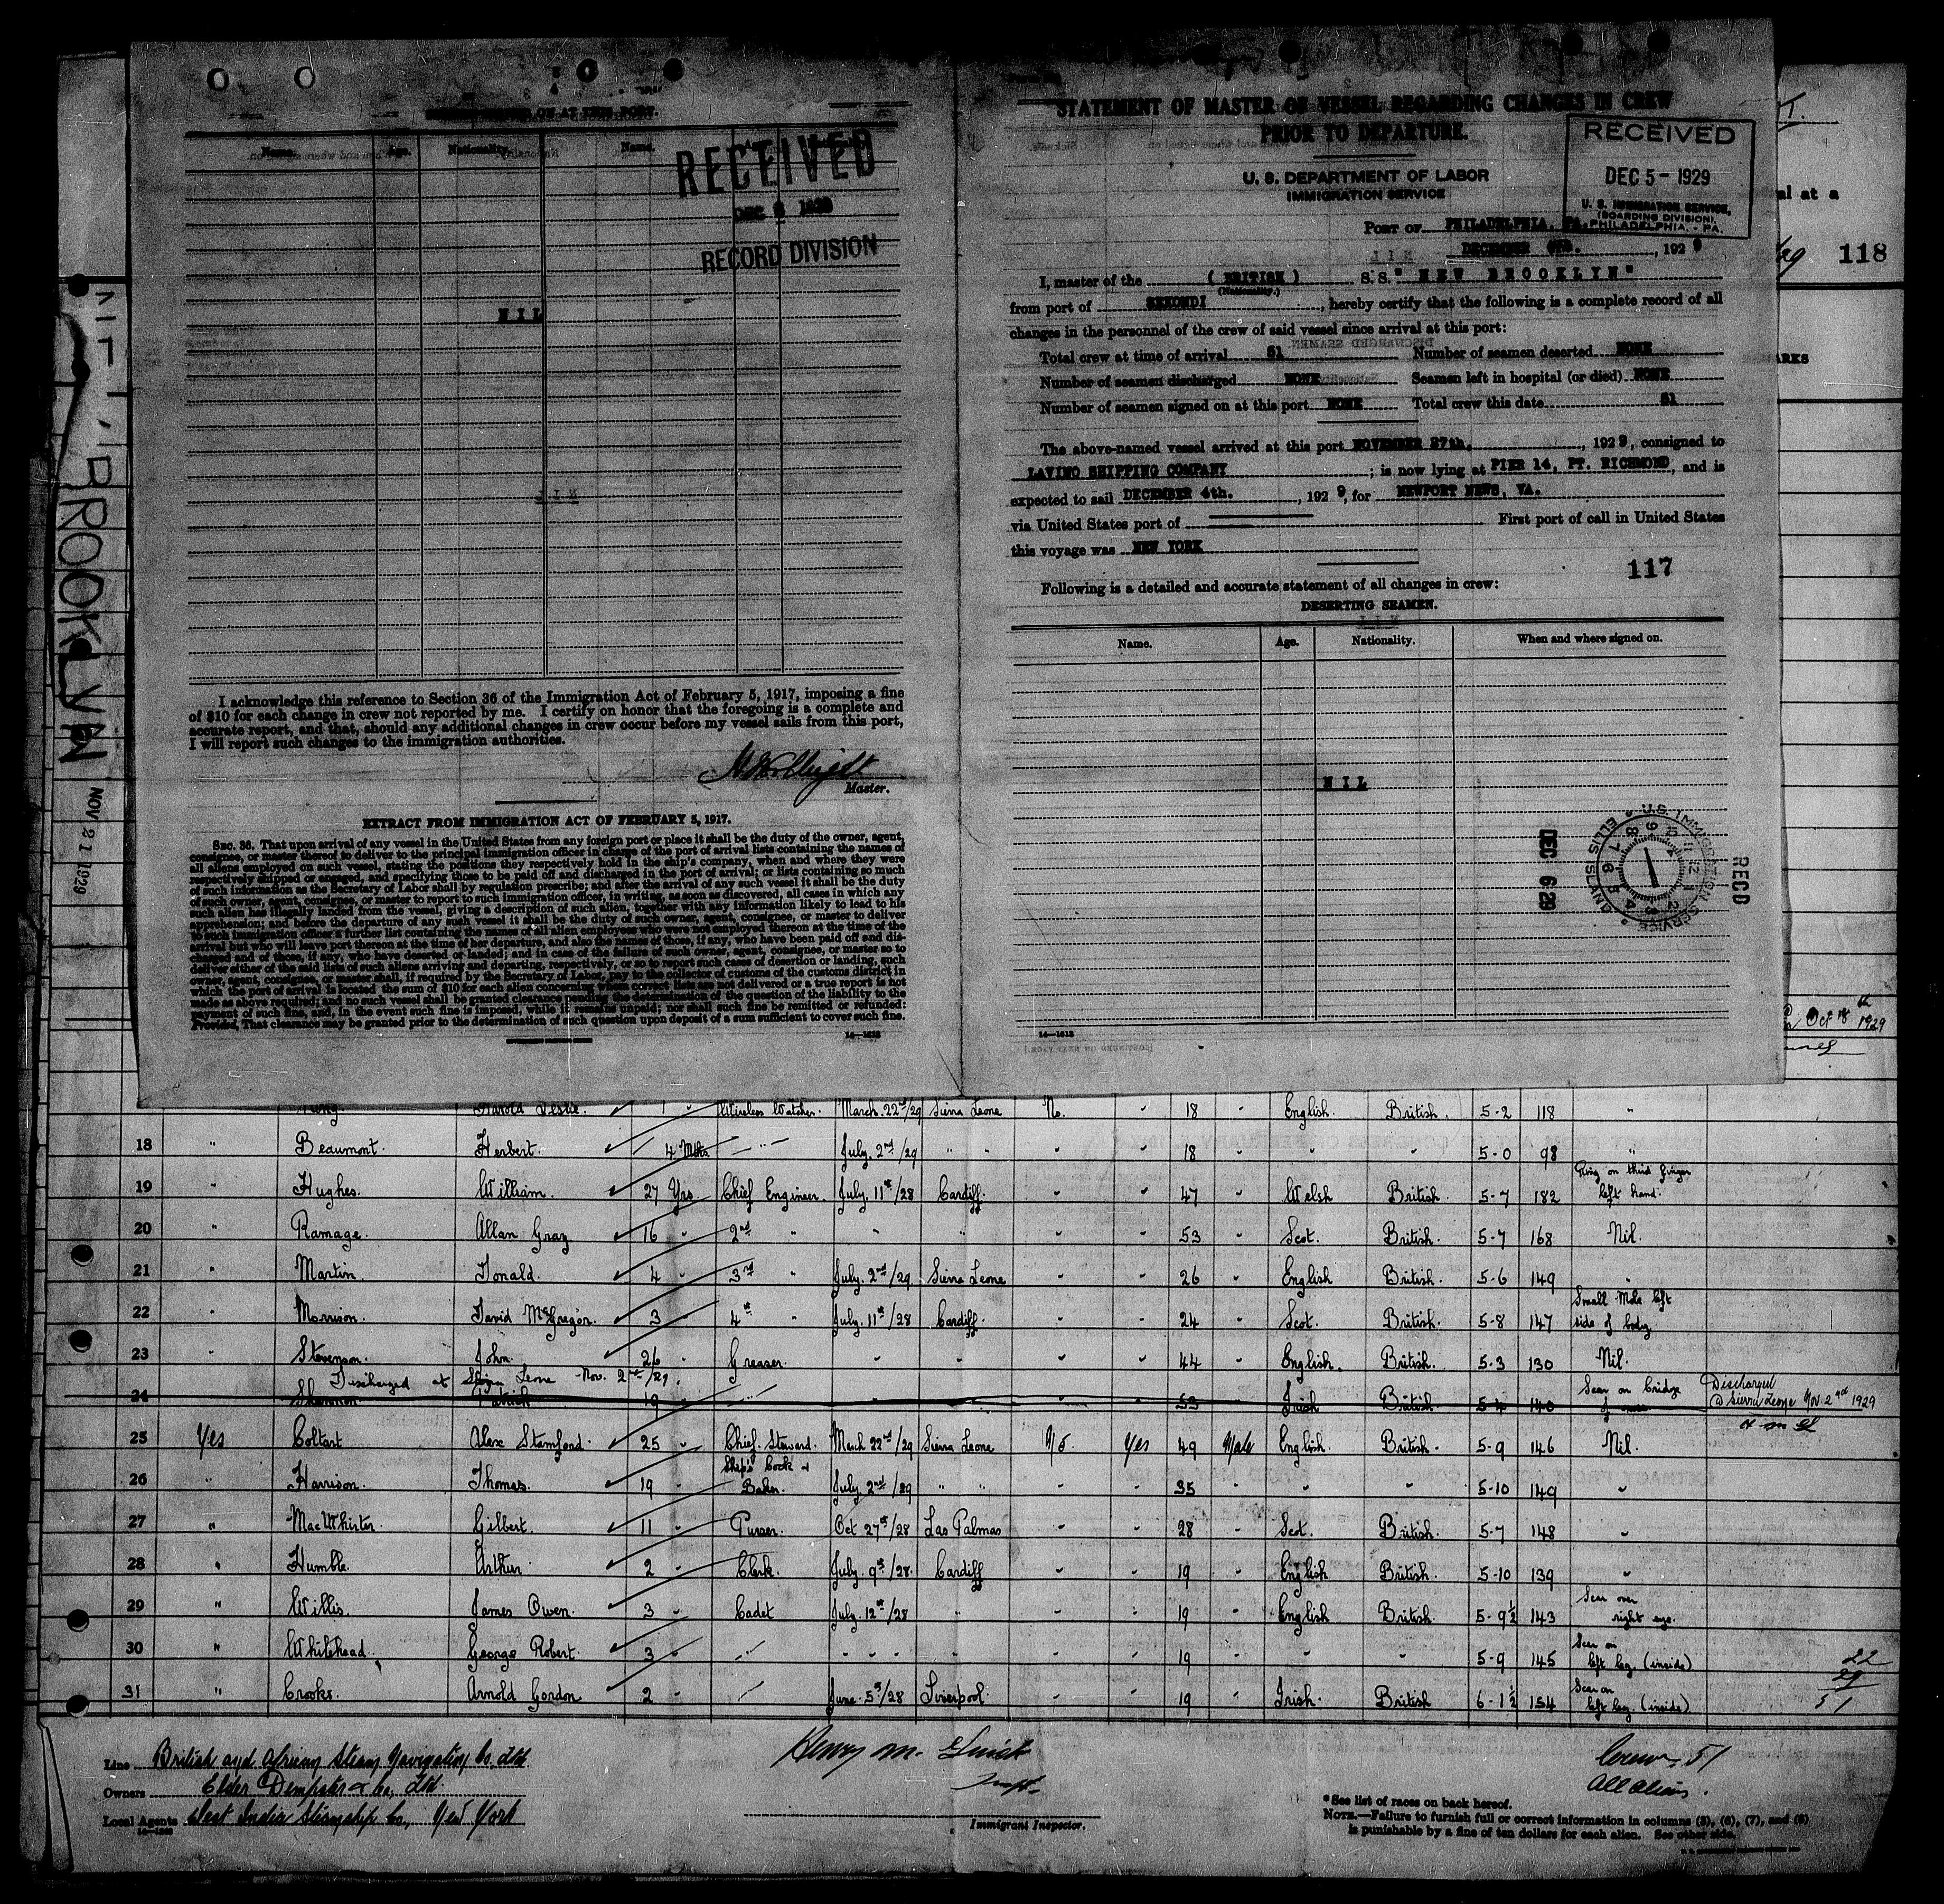 SIGNED ON AT THIS PORT.
Name. Age. Nationality. Name.
RECEIVED
DEC 1929
RECORD DIVISION
NIL
I acknowledge this reference to Section 36 of the Immigration Act of February 5, 1917, imposing a fine
of $10 for each change in crew not reported by me. I certify on honor that the foregoing is a complete and
accurate report, and that, should any additional changes in crew occur before my vessel sails from this port,
I will report such changes to the immigration authorities.
Master.
EXTRACT FROM IMMIGRATION ACT OF FEBRUARY 5, 1917.
SEC. 36. That upon arrival of any vessel in the United States from any foreign port or place it shall be the duty of the owner, agent,
consignee, or master thereof to deliver to the principal immigration officer in charge of the port of arrival lists containing the names of
all aliens employed on such vessel, stating the positions they respectively hold in the ship's company, when and where they were
respectively shipped or engaged, and specifying those to be paid off and discharged in the port of arrival; or lists containing so much
of such information as the Secretary of Labor shall by regulation prescribe; and after the arrival of any such vessel it shall be the duty
of such owner, agent, consignee, or master to report to such immigration officer, in writing, as soon as discovered, all cases in which any
such alien has illegally landed from the vessel, giving a description of such alien, together with any information likely to lead to his
apprehension; and before the departure of any such vessel it shall be the duty of such owner, agent, consignee, or master to deliver
to such immigration officer a further list containing the names of all alien employees who were not employed thereon at the time of the
arrival but who will leave port thereon at the time of her departure, and also the names of those, if any, who have been paid off and dis-
charged and of those, if any, who have deserted or landed; and in case of the failure of such owner, agent, consignee, or master so to
deliver either of the said lists of such aliens arriving and departing, respectively, or so to report such cases of desertion or landing, such
owner, agent, consignee, or master, shall, if required by the Secretary of Labor, pay to the collector of customs of the customs district in
which the port of arrival is located the sum of $10 for each alien concerning whom correct lists are not delivered or a true report is not
made as above required; and no such vessel shall be granted clearance pending the determination of the question of the liability to the
payment of such fine, and, in the event such fine is imposed, while it remains unpaid; nor shall such fine be remitted or refunded:
Provided, That clearance may be granted prior to the determination of such question upon deposit of a sum sufficient to cover such fine.
STATEMENT OF MASTER OF VESSEL REGARDING CHANGES IN CREW
PRIOR TO DEPARTURE.
U. S. DEPARTMENT OF LABOR
IMMIGRATION SERVICE
RECEIVED
DEC 5 - 1929
U. S. IMMIGRATION SERVICE,
(BOARDING DIVISION)
PHILADELPHIA. - PA.
PORT OF PHILADELPHIA, PA.
DECEMBER , 1929
I, master of the (BRITISH) S. S. "NEW BROOKLYN"
(Nationality.)
from port of SEKONDI, hereby certify that the following is a complete record of all
changes in the personnel of the crew of said vessel since arrival at this port:
Total crew at time of arrival 51 Number of seamen deserted NONE
Number of seamen discharged NONE Seamen left in hospital (or died) NONE
Number of seamen signed on at this port NONE Total crew this date 51
The above-named vessel arrived at this port NOVEMBER 27th, 1929, consigned to
LAVINO SHIPPING COMPANY; is now lying at PIER 14, PT. RICHMOND, and is
expected to sail DECEMBER 4th., 1929, for NEWPORT NEWS, VA.
via United States port of First port of call in United States
this voyage was NEW YORK
117
Following is a detailed and accurate statement of all changes in crew:
DESERTING SEAMEN.
Name. Age. Nationality. When and where signed on.
NIL
U.S. IMMIGRATION SERVICE ELLIS ISLAND
DEC 6 29
REC'D
14—1613
al at a
118
ARKS
Oct 18th 1929
BROOKLYN
NOV 21 1929
Harold Leslie 1 " Wireless Watcher. March. 22nd/29 Sierra Leone No. " 18 " English. British. 5-2 118 "
18 " Beaumont. Herbert. 4 Mths. " July. 2nd/29 " " " 18 " " " 5-0 98 "
19 " Hughes. William. 27 Yrs Chief Engineer. July. 11th/28 Cardiff. " " 47 " Welsh British. 5-7 182 Ring on third finger left hand.
20 " Ramage. Allan Gray 16 " 2nd " " " " " 53 " Scot. British. 5-7 168 Nil.
21 " Martin. Donald. 4 " 3rd " July. 2nd/29 Sierra Leone " " 26 " English British. 5-6 149 "
22 " Morrison. David McGregor. 3 " 4th " July. 11th/28 Cardiff. " " 24 " Scot. British. 5-8 147 Small Mole left side of body
23 " Stevenson. John. 26 " Greaser. " " " " 44 " English. British. 5-3 130 Nil.
Discharged at Sierra Leone Nov. 2nd/29.
24 Shannon Patrick 19 " " " 53 Irish British 5-4 140 Scar on bridge of nose Discharged @ Sierra Leone Nov. 2nd 1929
25 Yes Coltart Alex Stamford. 25 " Chief Steward. March 22nd/29 Sierra Leone No. Yes 49 Male English. British. 5-9 146 Nil.
26 " Harrison. Thomas. 19 " Ship's Cook & Baker. July. 2nd/29 " " " " 35 " " " 5-10 149 "
27 " MacWhirter. Gilbert. 11 " Purser. Oct 27th/28 Las Palmas " " 28 " Scot. British. 5-7 148 "
28 " Humble. Arthur 2 " Clerk. July. 9th/28. Cardiff " " 19 " English British. 5-10 139 "
29 " Willis. James Owen. 3 " Cadet July. 12th/28 " " " 19 " English British. 5-9½ 143 Scar over right eye.
30 " Whitehead. George Robert. 3 " " " " " " 19 " " " 5-9 145 Scar on left leg. (inside)
31 " Crooks. Arnold Gordon 2 " " June. 5th/28 Liverpool. " " 19 " Irish. British 6-1½ 154 Scar on left leg. (inside)
22
29
51
Line British and African Steam Navigation Co. Ltd.
Owners Elder Dempster & Co, Ltd.
Local Agents West India Steamship Co., New York
Henry M.
Inspt.
Immigrant Inspector.
Crew, 51
All aliens.
*See list of races on back hereof.
NOTE.—Failure to furnish full or correct information in columns (3), (6), (7), and (8)
is punishable by a fine of ten dollars for each alien. See other side.